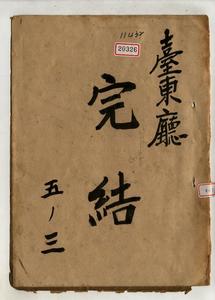 臺東廳
完結
五ノ三
20326